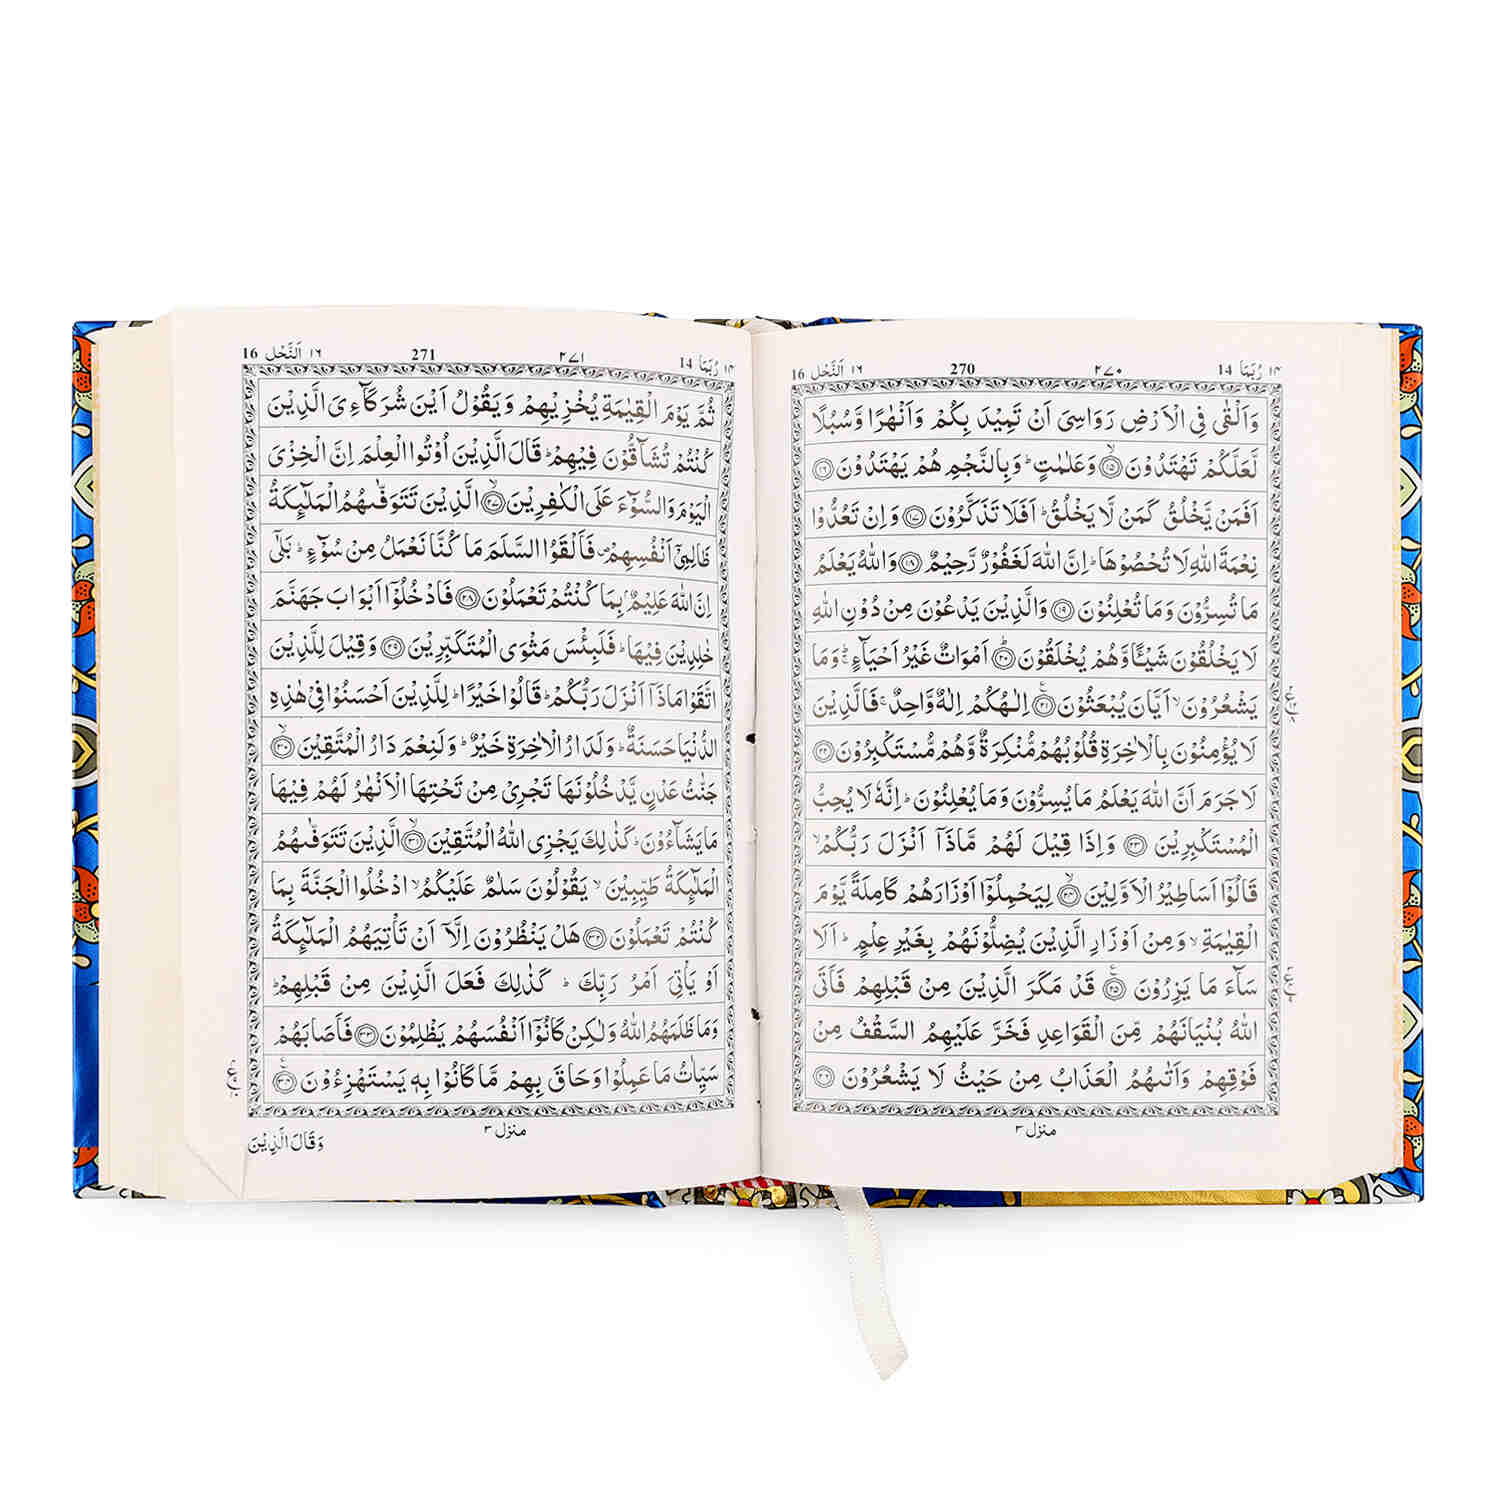 ١٤ رُبَمَا 14 ٢٧٠ 270 ١٦ اَلنَّحْل 16
وَاَلْقٰى فِى الْاَرْضِ رَوَاسِىَ اَنْ تَمِيْدَ بِكُمْ وَاَنْهٰرًا وَّسُبُلًا
لَّعَلَّكُمْ تَهْتَدُوْنَ ۙ‏﴿۱۵﴾ وَعَلٰمٰتٍ‌ؕ وَبِالنَّجْمِ هُمْ يَهْتَدُوْنَ ﴿۱۶﴾
اَفَمَنْ يَّخْلُقُ كَمَنْ لَّا يَخْلُقُ‌ؕ اَفَلَا تَذَكَّرُوْنَ ﴿۱۷﴾ وَاِنْ تَعُدُّوْا
نِعْمَةَ اللّٰهِ لَا تُحْصُوْهَاؕ اِنَّ اللّٰهَ لَغَفُوْرٌ رَّحِيْمٌ ﴿۱۸﴾ وَاللّٰهُ يَعْلَمُ
مَا تُسِرُّوْنَ وَمَا تُعْلِنُوْنَ ﴿۱۹﴾ وَالَّذِيْنَ يَدْعُوْنَ مِنْ دُوْنِ اللّٰهِ
لَا يَخْلُقُوْنَ شَيْـًٔا وَّهُمْ يُخْلَقُوْنَؕ ﴿۲۰﴾ اَمْوَاتٌ غَيْرُ اَحْيَآءٍ‌ ۚ وَمَا
يَشْعُرُوْنَ ۙ اَيَّانَ يُبْعَثُوْنَ ﴿۲۱﴾ اِلٰهُكُمْ اِلٰهٌ وَّاحِدٌ‌ ۚ فَالَّذِيْنَ
لَا يُؤْمِنُوْنَ بِالْاٰخِرَةِ قُلُوْبُهُمْ مُّنْكِرَةٌ وَّهُمْ مُّسْتَكْبِرُوْنَ ﴿۲۲﴾
لَا جَرَمَ اَنَّ اللّٰهَ يَعْلَمُ مَا يُسِرُّوْنَ وَمَا يُعْلِنُوْنَ‌ؕ اِنَّهٗ لَا يُحِبُّ
الْمُسْتَكْبِرِيْنَ ﴿۲۳﴾ وَاِذَا قِيْلَ لَهُمْ مَّاذَاۤ اَنْزَلَ رَبُّكُمْ‌ۙ
قَالُوْۤا اَسَاطِيْرُ الْاَوَّلِيْنَۙ ﴿۲۴﴾ لِيَحْمِلُوْۤا اَوْزَارَهُمْ كَامِلَةً يَّوْمَ
الْقِيٰمَةِ‌ۙ وَمِنْ اَوْزَارِ الَّذِيْنَ يُضِلُّوْنَهُمْ بِغَيْرِ عِلْمٍ‌ؕ اَلَا
سَآءَ مَا يَزِرُوْنَ ﴿۲۵﴾ قَدْ مَكَرَ الَّذِيْنَ مِنْ قَبْلِهِمْ فَاَتَى
اللّٰهُ بُنْيَانَهُمْ مِّنَ الْقَوَاعِدِ فَخَرَّ عَلَيْهِمُ السَّقْفُ مِنْ
فَوْقِهِمْ وَاَتٰٮهُمُ الْعَذَابُ مِنْ حَيْثُ لَا يَشْعُرُوْنَ ﴿۲۶﴾
منزل ٣
١٤ رُبَمَا 14 ٢٧١ 271 ١٦ اَلنَّحْل 16
ثُمَّ يَوْمَ الْقِيٰمَةِ يُخْزِيْهِمْ وَيَقُوْلُ اَيْنَ شُرَكَآءِىَ الَّذِيْنَ
كُنْتُمْ تُشَآقُّوْنَ فِيْهِمْ‌ؕ قَالَ الَّذِيْنَ اُوْتُوا الْعِلْمَ اِنَّ الْخِزْىَ
الْيَوْمَ وَالسُّوْٓءَ عَلَى الْكٰفِرِيْنَۙ ﴿۲۷﴾ الَّذِيْنَ تَتَوَفّٰٮهُمُ الْمَلٰٓئِكَةُ
ظَالِمِىْۤ اَنْفُسِهِمْ‌ فَاَلْقَوُا السَّلَمَ مَا كُنَّا نَعْمَلُ مِنْ سُوْٓءٍؕ بَلٰٓى
اِنَّ اللّٰهَ عَلِيْمٌۢ بِمَا كُنْتُمْ تَعْمَلُوْنَ ﴿۲۸﴾ فَادْخُلُوْۤا اَبْوَابَ جَهَنَّمَ
خٰلِدِيْنَ فِيْهَا‌ؕ فَلَبِئْسَ مَثْوَى الْمُتَكَبِّرِيْنَ ﴿۲۹﴾ وَقِيْلَ لِلَّذِيْنَ
اتَّقَوْا مَاذَاۤ اَنْزَلَ رَبُّكُمْ‌ؕ قَالُوْا خَيْرًاؕ لِلَّذِيْنَ اَحْسَنُوْا فِىْ هٰذِهِ
الدُّنْيَا حَسَنَةٌ‌ ؕ وَلَدَارُ الْاٰخِرَةِ خَيْرٌ‌ ؕ وَلَنِعْمَ دَارُ الْمُتَّقِيْنَۙ ﴿۳۰﴾
جَنّٰتُ عَدْنٍ يَّدْخُلُوْنَهَا تَجْرِىْ مِنْ تَحْتِهَا الْاَنْهٰرُ‌ لَهُمْ فِيْهَا
مَا يَشَآءُوْنَ‌ؕ كَذٰلِكَ يَجْزِى اللّٰهُ الْمُتَّقِيْنَۙ ﴿۳۱﴾ الَّذِيْنَ تَتَوَفّٰٮهُمُ
الْمَلٰٓئِكَةُ طَيِّبِيْنَ‌ ۙ يَقُوْلُوْنَ سَلٰمٌ عَلَيْكُمُۙ ادْخُلُوا الْجَنَّةَ بِمَا
كُنْتُمْ تَعْمَلُوْنَ ﴿۳۲﴾ هَلْ يَنْظُرُوْنَ اِلَّاۤ اَنْ تَاْتِيَهُمُ الْمَلٰٓئِكَةُ
اَوْ يَاْتِىَ اَمْرُ رَبِّكَ‌ؕ كَذٰلِكَ فَعَلَ الَّذِيْنَ مِنْ قَبْلِهِمْ‌ؕ
وَمَا ظَلَمَهُمُ اللّٰهُ وَلٰـكِنْ كَانُوْۤا اَنْفُسَهُمْ يَظْلِمُوْنَ ﴿۳۳﴾ فَاَصَابَهُمْ
سَيِّاٰتُ مَا عَمِلُوْا وَحَاقَ بِهِمْ مَّا كَانُوْا بِهٖ يَسْتَهْزِءُوْنَ ﴿۳۴﴾
منزل ٣
وَقَالَ الَّذِيْنَ